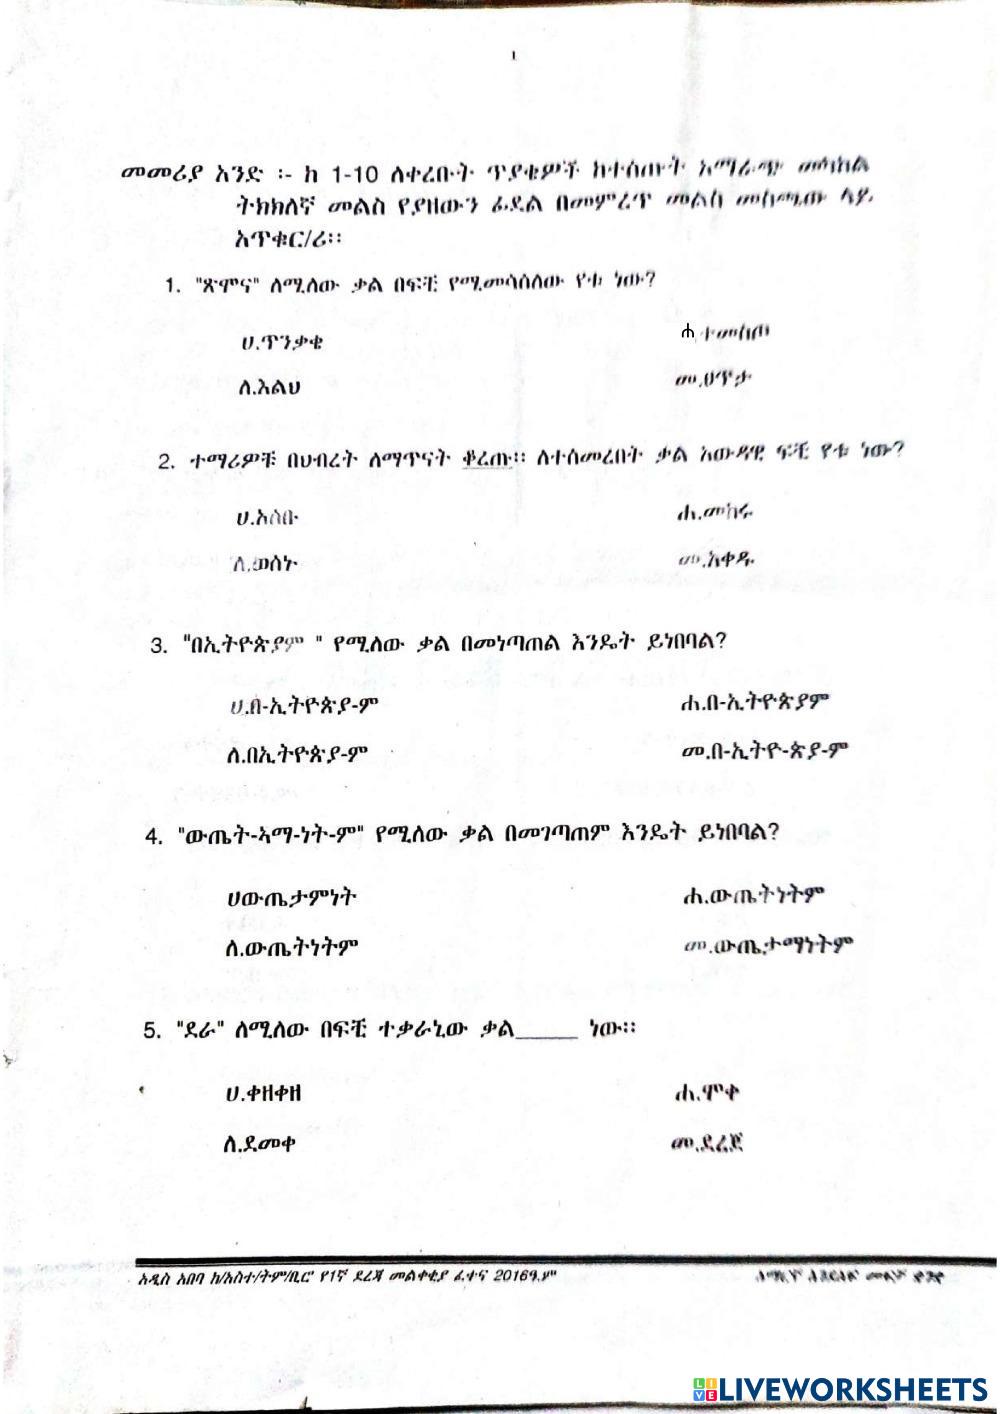 1
መመሪያ አንድ ፡- ከ 1-10 ለቀረቡት ጥያቄዎች ከተሰጡት አማራጭ መካከል
ትክክለኛ መልስ የያዘውን ፊደል በመምረጥ መልስ መስጫው ላይ
አጥቁር/ሪ።
1. "ጽሞና" ለሚለው ቃል በፍቺ የሚመሳሰለው የቱ ነው?
ሀ.ጥንቃቄ
ሐ ተመስጦ
ለ.እልህ
መ.ፀጥታ
2. ተማሪዎቹ በህብረት ለማጥናት ቆረጡ። ለተሰመረበት ቃል አውዳዊ ፍቺ የቱ ነው?
ሀ.አሰቡ
ሐ.መከሩ
ለ.ወሰኑ
መ.አቀዱ
3. "በኢትዮጵያም " የሚለው ቃል በመነጣጠል እንዴት ይነበባል?
ሀ.በ-ኢትዮጵያ-ም
ሐ.በ-ኢትዮጵያም
ለ.በኢትዮጵያ-ም
መ.በ-ኢትዮ-ጵያ-ም
4. "ውጤት-ኣማ-ነት-ም" የሚለው ቃል በመገጣጠም እንዴት ይነበባል?
ሀውጤታምነት
ሐ.ውጤትነትም
ለ.ውጤትነትም
መ.ውጤታማነትም
5. "ደራ" ለሚለው በፍቺ ተቃራኒው ቃል_____ ነው።
ሀ.ቀዘቀዘ
ሐ.ሞቀ
ለ.ደመቀ
መ.ደረጀ
አዲስ አበባ ከ/አስተ/ትም/ቢሮ የ1ኛ ደረጃ መልቀቂያ ፈተና 2016ዓ.ም
LIVEWORKSHEETS